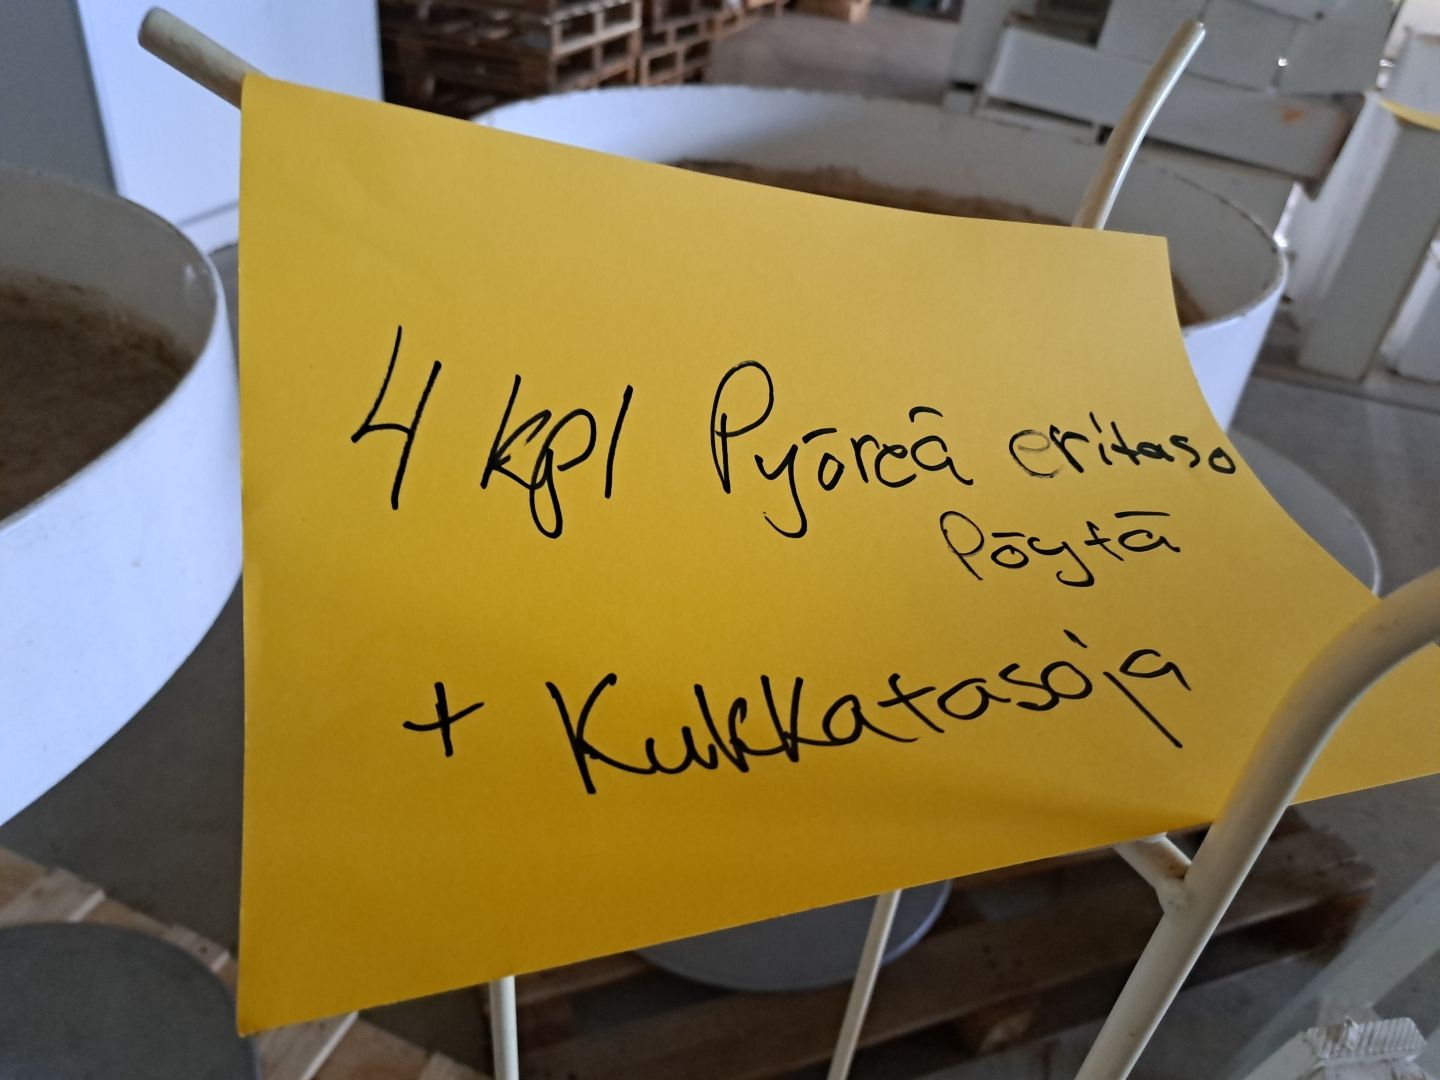 4 kpl Pyöreä eritaso
Pöytä
+ Kukkatasoja